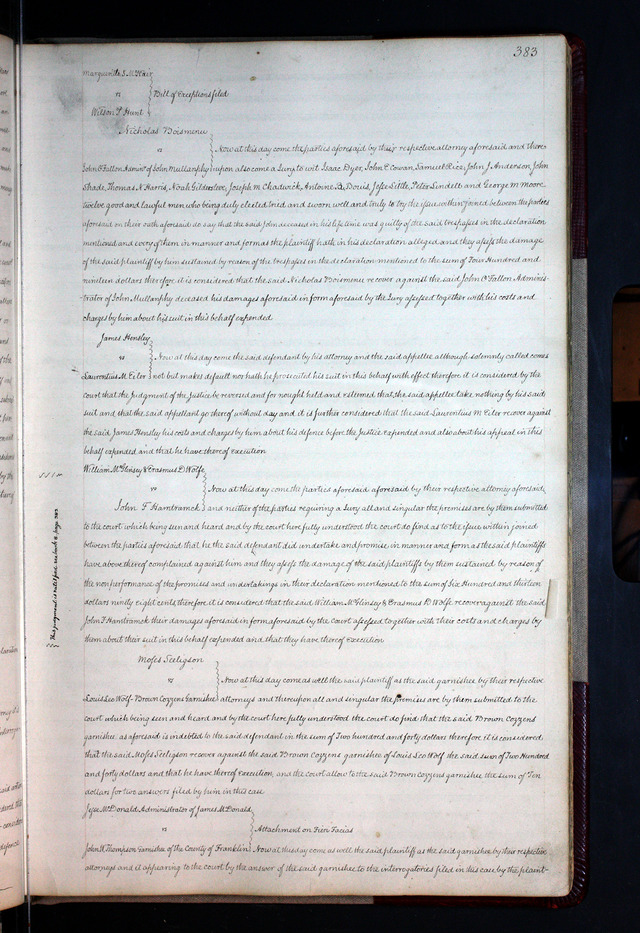 383
Marguerite S. McNair
vs } Bill of Exceptions filed
Wilson P Hunt
Nicholas Boismenu
vs } Now at this day come the parties aforesaid by their respective attorney aforesaid and there
John O'Fallon Admtor of John Mullanphy upon also come a Jury to wit Isaac Dyer, John C Cowan, Samuel Rice, John J Anderson, John
Shade, Thomas A Harris, Noah Gildersleve, Joseph M Chadwick, Antoine La Douis, Jesse Little, Peter Lindell and George M Moore
twelve good and lawful men who being duly elected tried and sworn well and truly to try the issue within joined between the parties
aforesaid on their oath aforesaid do say that the said John deceased in his lifetime was guilty of the said trespasses in the declaration
mentioned and every of them in manner and form as the plaintiff hath in his declaration alleged and they assess the damage
of the said plaintiff by him sustained by reason of the trespasses in the declaration mentioned to the sum of Four Hundred and
nineteen dollars therefore it is considered that the said Nicholas Boismenu recover against the said John O'Fallon Adminis-
trator of John Mullanphy deceased his damages aforesaid in form aforesaid by the Jury assessed together with his costs and
charges by him about his suit in this behalf expended
James Hensley
vs } Now at this day come the said defendant by his attorney and the said appellee although solemnly called comes
Laurentius M. Eiler not but makes default nor hath he prosecuted his suit in this behalf with effect therefore it is considered by the
court that the judgment of the Justice be reversed and for nought held and esteemed that the said appellee take nothing by his said
suit and that the said appellant go thereof without day and it is further considered that the said Laurentius M. Eiler recover against
the said James Hensley his costs and charges by him about his defence before the Justice expended and also about his appeal in this
behalf expended and that he have thereof execution
William McGlinsey & Erasmus D Wolfe
vs } Now at this day come the parties aforesaid aforesaid by their respective attorney aforesaid
John F Hamtramck and neither of the parties requiring a Jury all and singular the premises are by them submitted
to the court which being seen and heard and by the court here fully understood the court do find as to the issue within joined
between the parties aforesaid that he the said defendant did undertake and promise in manner and form as the said plaintiffs
have above thereof complained against him and they assess the damage of the said plaintiffs by them sustained by reason of
the nonperformance of the promises and undertakings in their declaration mentioned to the sum of Six Hundred and thirteen
dollars ninety eight cents therefore it is considered that the said William McGlinsey & Erasmus D Wolfe recover against the said
John F Hamtramck their damages aforesaid in form aforesaid by the court assessed together with their costs and charges by
them about their suit in this behalf expended and that they have thereof execution
Moses Seeligson
vs } Now at this day come as well the said plaintiff as the said garnishee by their respective
Louis Leo Wolf - Brown Cozzens Garnishee attorneys and thereupon all and singular the premises are by them submitted to the
court which being seen and heard and by the court here fully understood the court do find that the said Brown Cozzens
garnishee as aforesaid is indebted to the said defendant in the sum of Two hundred and forty dollars therefore it is considered
that the said Moses Seeligson recover against the said Brown Cozzens garnishee of Louis Leo Wolf the said sum of Two Hundred
and forty dollars and that he have thereof execution, and the court allow to the said Brown Cozzens garnishee the sum of Ten
dollars for two answers filed by him in this case
Jesse McDonald Administrator of James McDonald
vs } Attachment on Fieri Facias
John H Thompson Garnishee of the County of Franklin Now at this day come as well the said plaintiff as the said garnishee by their respective
attorneys and it appearing to the court by the answer of the said garnishee to the interrogatories filed in this case by the plaint-